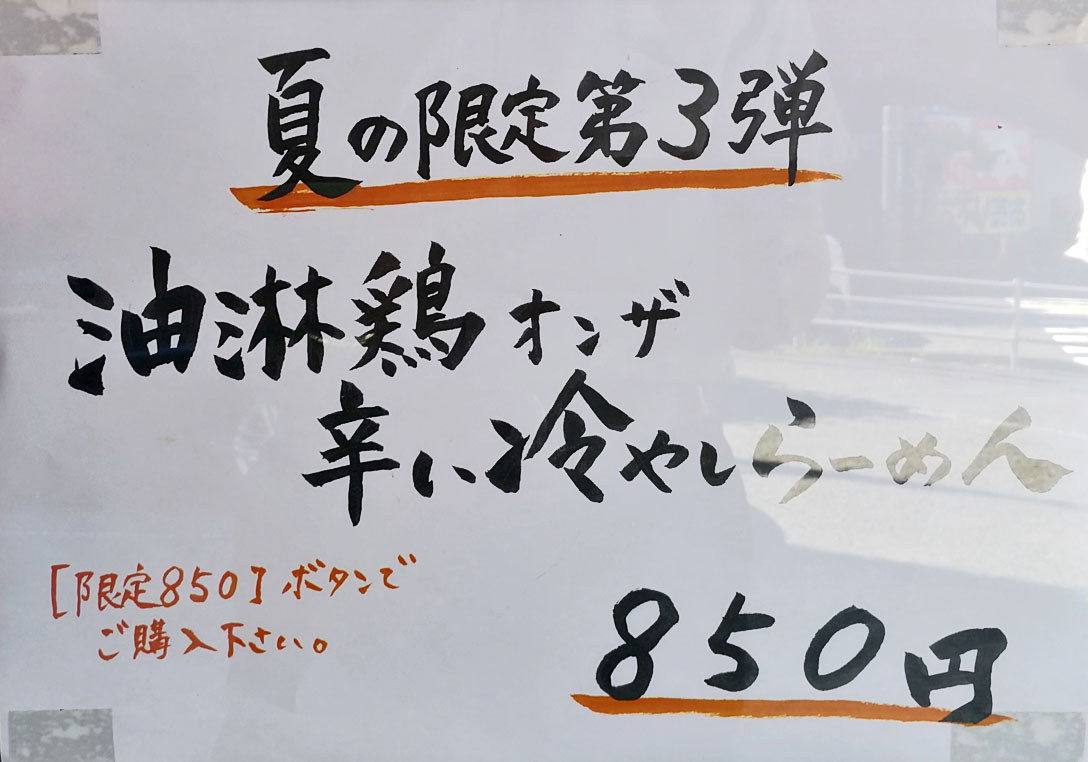 夏の限定第3弾
油淋鶏オンザ
辛い冷やしらーめん
[限定850]ボタンで
ご購入下さい。
850円